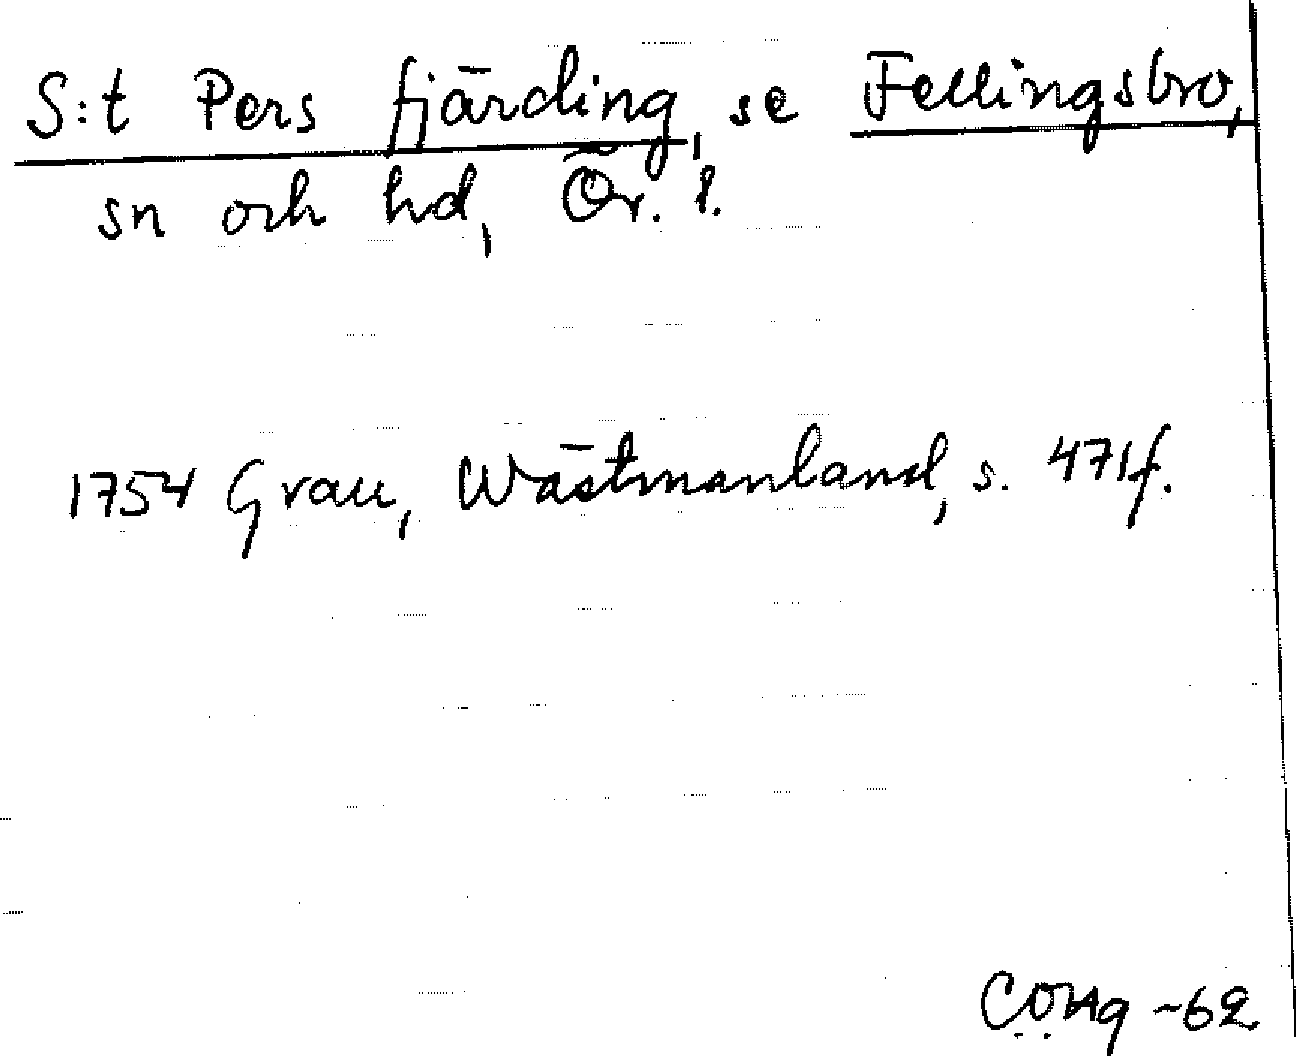 S:t Pers fjärding, se Fellingsbro,
sn och hd, Ör. l.
1754 Grau, Wästmanland, s. 471f.
-62